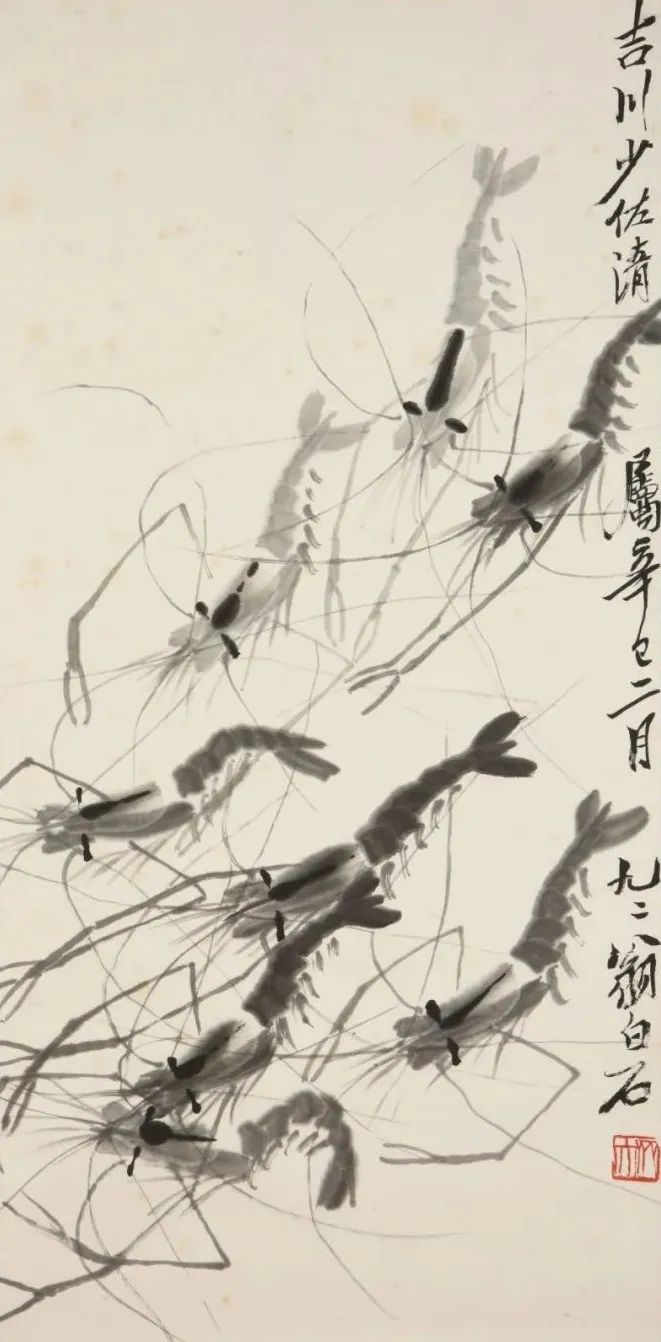 吉川少佐清屬辛巳二月九〻翁白石